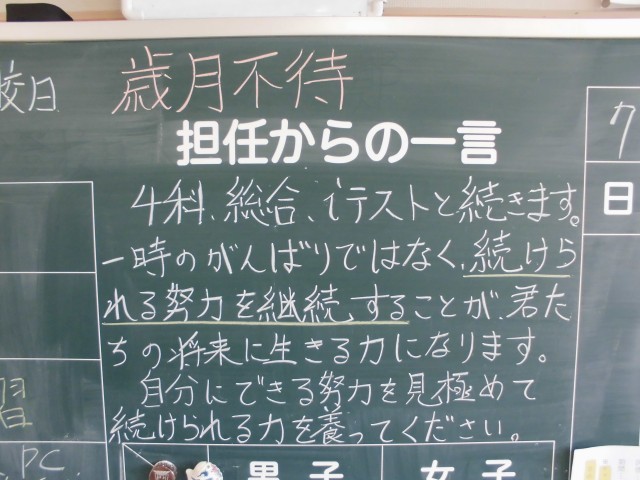 校日
歳月不待
担任からの一言
4科、総合、iテストと続きます。
一時のがんばりではなく、続けら
れる努力を継続することが、君た
ちの将来に生きる力になります。
自分にできる努力を見極めて
続けられる力を養ってください。
習
PC
男子
女子
日